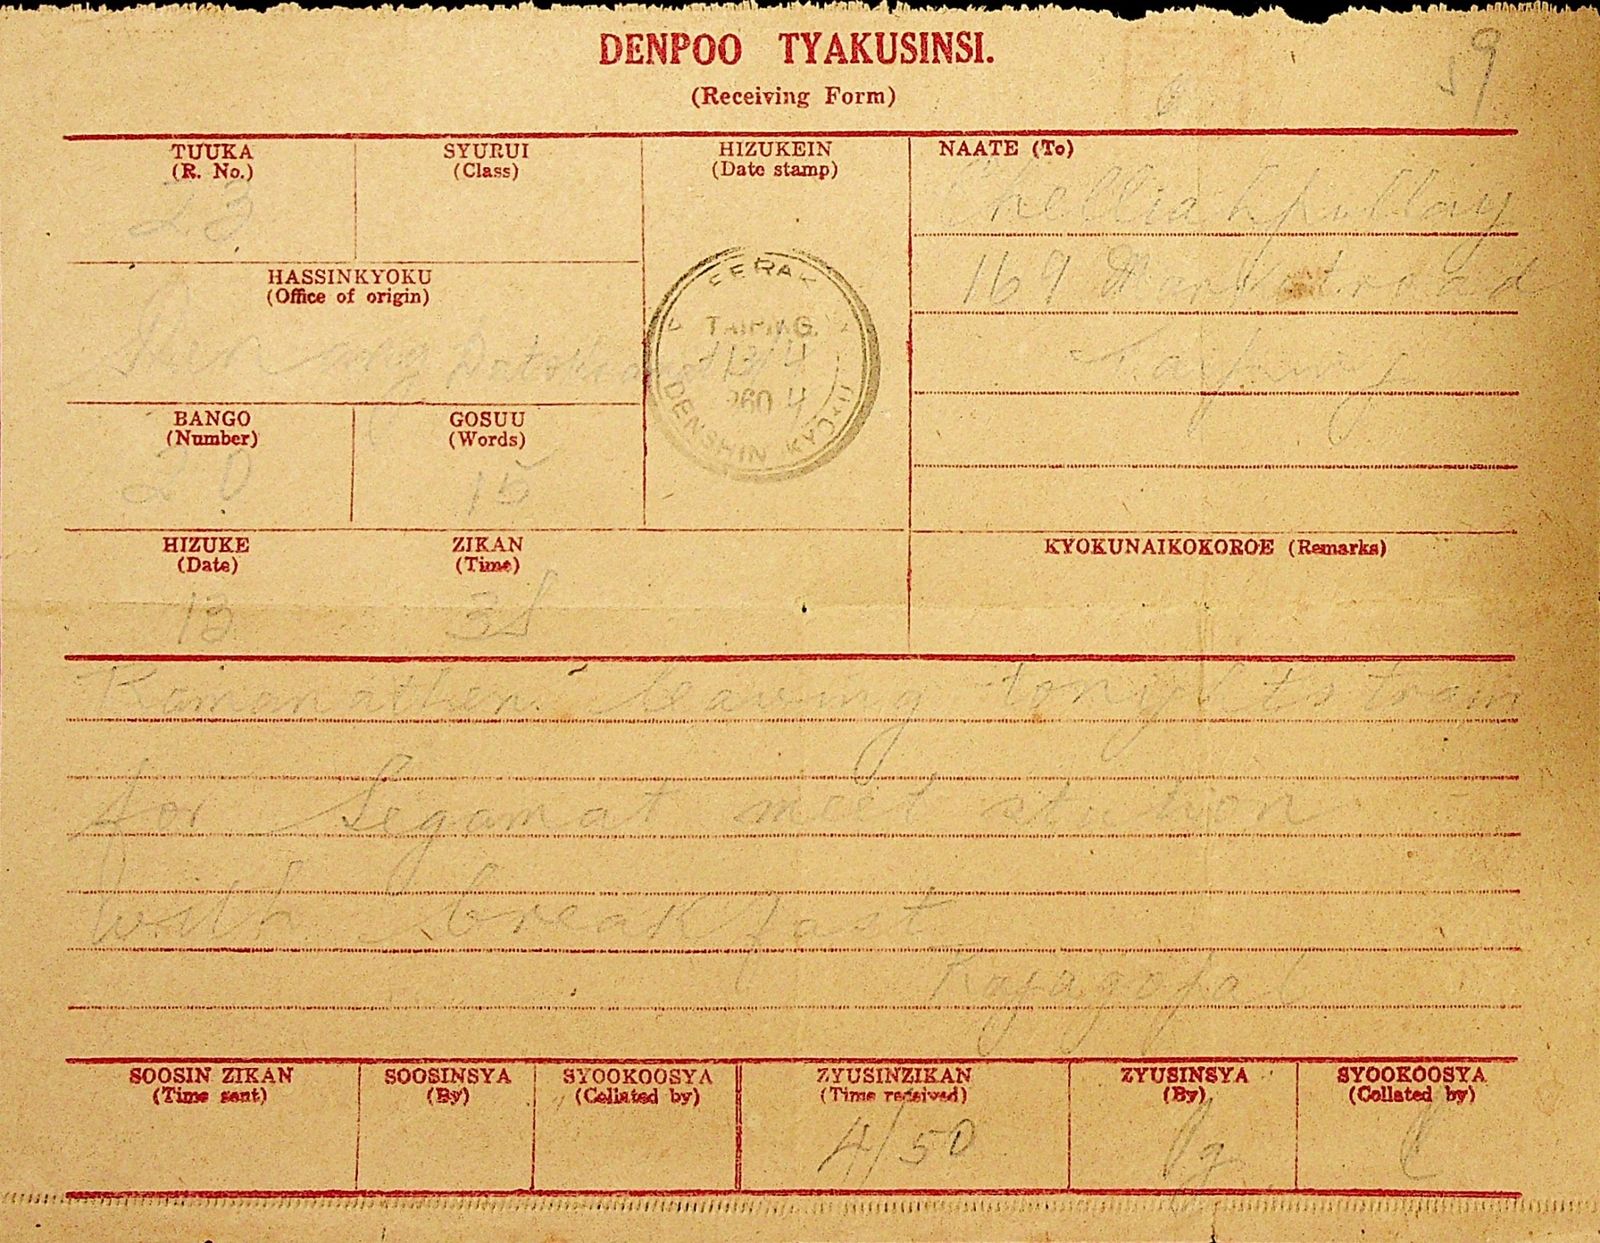 DENPOO TYAKUSINSI.
(Receiving Form)
59
TUUKA
(R. No.)
23
SYURUI
(Class)
HIZUKEIN
(Date stamp)
NAATE (To)
Chelliahpillay
169 Market road
Taiping
HASSINKYOKU
(Office of origin)
TAIPING
13/4
2604
DENSHIN KYOKU
BANGO
(Number)
20
GOSUU
(Words)
15
HIZUKE
(Date)
13
ZIKAN
(Time)
KYOKUNAIKOKOROE (Remarks)
Ramanathen leaving tonights train
for Segamat meet station
with breakfast
Rajagopal
SOOSIN ZIKAN
(Time sent)
SOOSINSYA
(By)
SYOOKOOSYA
(Collated by)
ZYUSINZIKAN
(Time received)
4/50
ZYUSINSYA
(By)
SYOOKOOSYA
(Collated by)